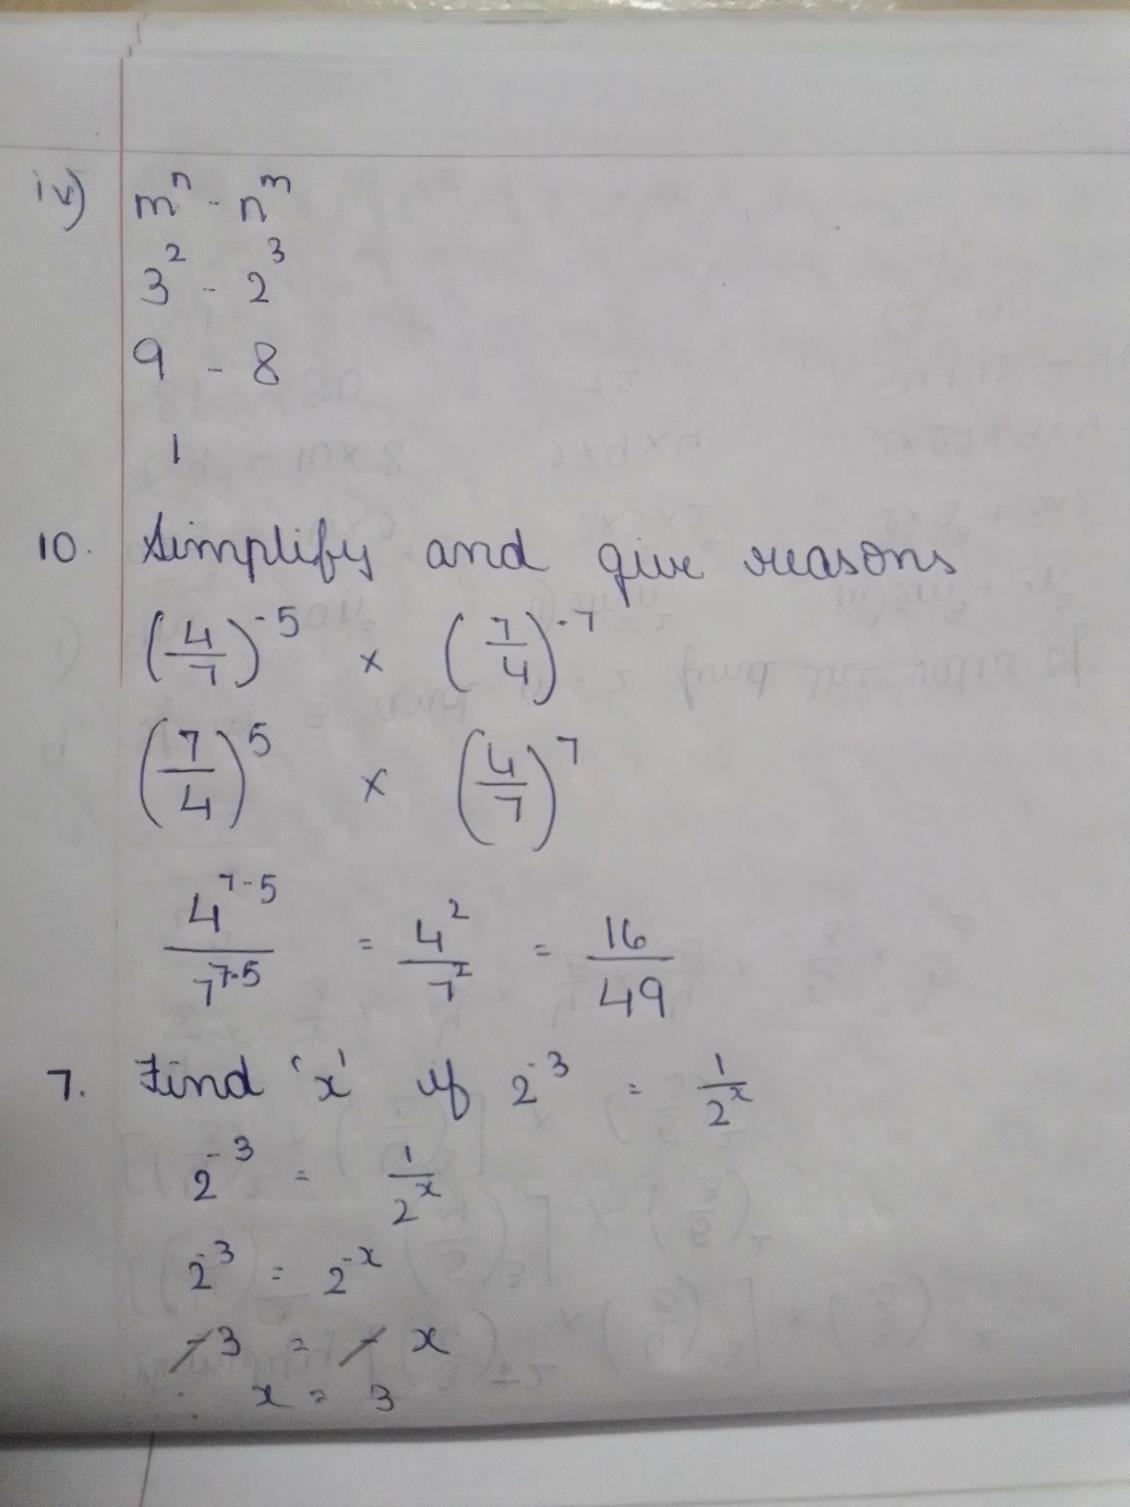 iv) mⁿ - nᵐ
3² - 2³
9 - 8
1
10. Simplify and give reasons
(4/7)⁻⁵ × (7/4)⁻⁷
(7/4)⁵ × (4/7)⁷
4⁷⁻⁵/7⁷⁻⁵ = 4²/7² = 16/49
7. Find 'x' if 2⁻³ = 1/2ˣ
2⁻³ = 1/2ˣ
2⁻³ = 2⁻ˣ
-3 = - x
x = 3